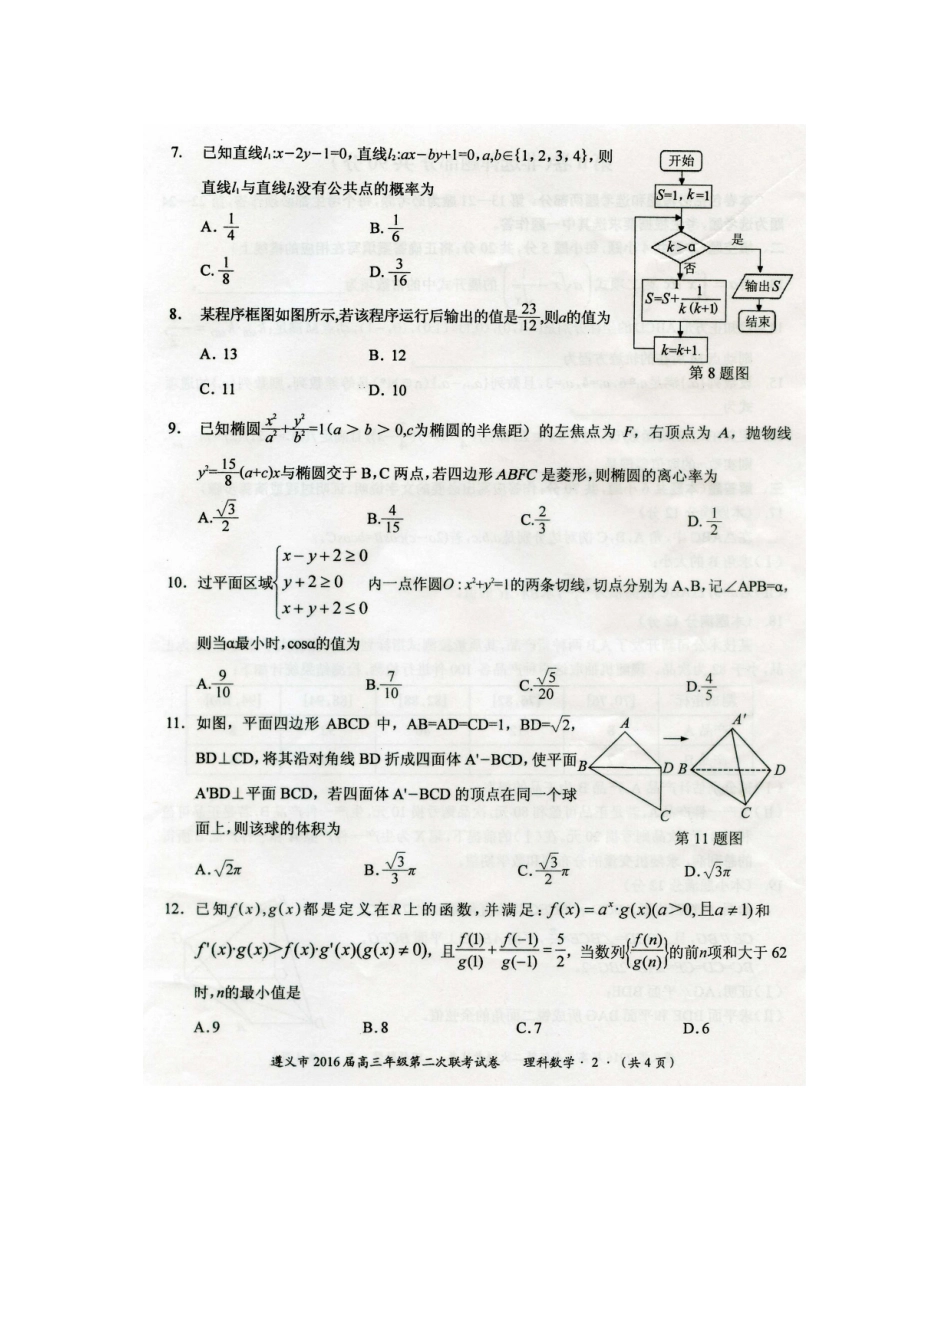 7. 已知直线l₁:x-2y-1=0,直线l₂:ax-by+1=0,a,b∈{1,2,3,4},则
直线l₁与直线l₂没有公共点的概率为
A. 1/4 B. 1/6
C. 1/8 D. 3/16
开始
S=1,k=1
k>a
是
否
S=S+1/k(k+1)
输出S
结束
k=k+1
第8题图
8. 某程序框图如图所示,若该程序运行后输出的值是23/12,则a的值为
A. 13 B. 12
C. 11 D. 10
9. 已知椭圆x²/a²+y²/b²=1(a>b>0,c为椭圆的半焦距)的左焦点为F,右顶点为A,抛物线
y²=15/8(a+c)x与椭圆交于B,C两点,若四边形ABFC是菱形,则椭圆的离心率为
A. √3/2 B. 4/15 C. 2/3 D. 1/2
10. 过平面区域{x-y+2≥0 y+2≥0 x+y+2≤0 内一点作圆O:x²+y²=1的两条切线,切点分别为A、B,记∠APB=α,
则当α最小时,cosα的值为
A. 9/10 B. 7/10 C. √5/20 D. 4/5
11. 如图,平面四边形ABCD中,AB=AD=CD=1,BD=√2,
BD⊥CD,将其沿对角线BD折成四面体A'-BCD,使平面
A'BD⊥平面BCD,若四面体A'-BCD的顶点在同一个球
面上,则该球的体积为
A B D C
A' B D C
第11题图
A. √2π B. √3/3π C. √3/2π D. √3π
12. 已知f(x),g(x)都是定义在R上的函数,并满足:f(x)=aˣ·g(x)(a>0,且a≠1)和
f'(x)·g(x)>f(x)·g'(x)(g(x)≠0),且f(1)/g(1)+f(-1)/g(-1)=5/2,当数列{f(n)/g(n)}的前n项和大于62
时,n的最小值是
A.9 B.8 C.7 D.6
遵义市2016届高三年级第二次联考试卷 理科数学·2·(共4页)